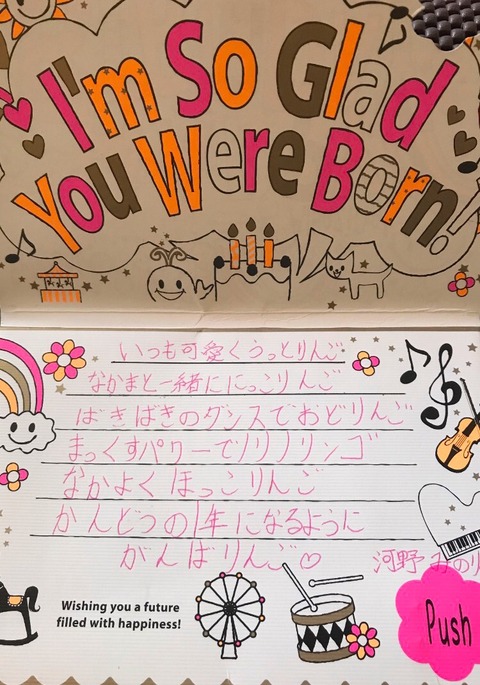 I'm So Glad
You Were Born!
いつも可愛くうっとりんご
なかまと一緒ににっこりんご
ばきばきのダンスでおどりんご
まっくすパワーでノリノリンゴ
なかよくほっこりんご
かんどうの1年になるように
がんばりんご♡ 河野みのり
Wishing you a future
filled with happiness!
Push